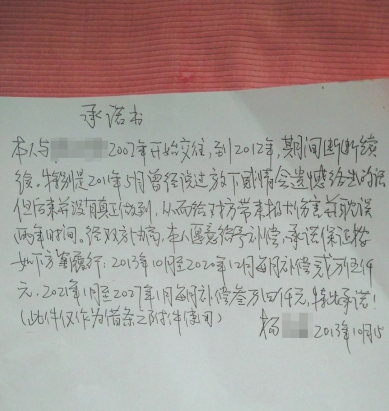 承诺书
本人与 2007年开始交往，到2012年，其间断断续
续。特别是2011年5月曾经说过放下
但后来并没有真正做到，从而给对方带来极大伤害并耽误
两年时间。经双方协商，本人愿意给予补偿，承诺保证按
如下方案履行：2013年10月至2020年12月每月补偿贰万伍仟
元，2021年1月至2027年1月每月补偿叁万四仟元，特此承诺！
（此件仅作为借条之附件使用）
杨 2013年10月15